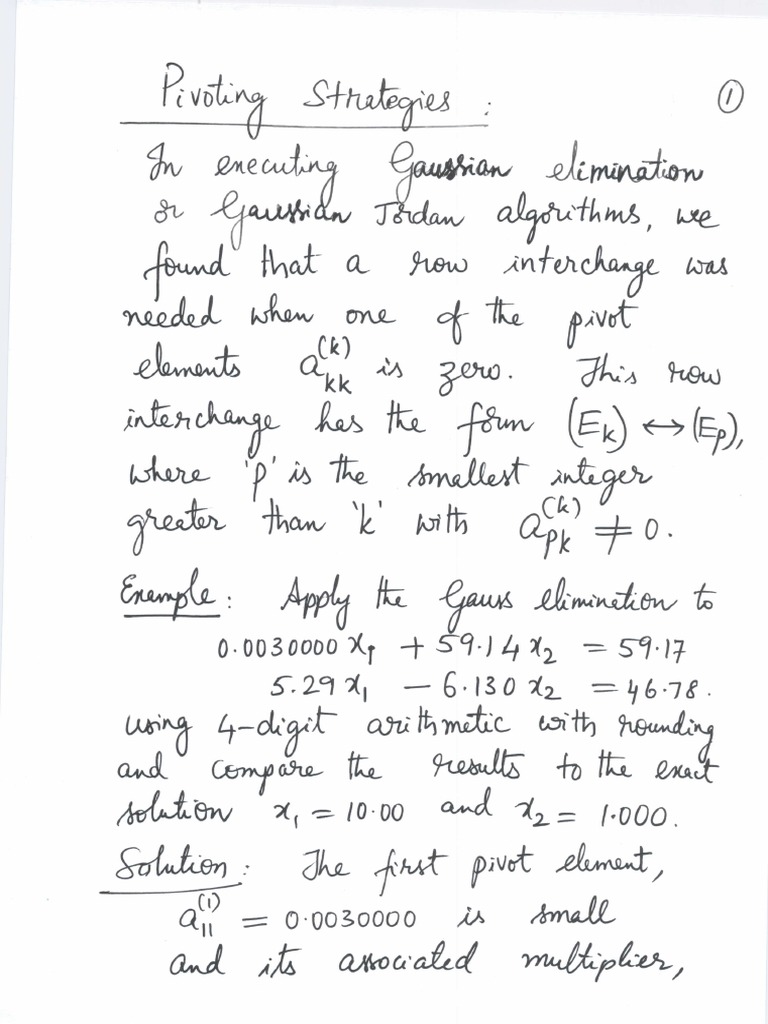 Pivoting Strategies : ①
In executing Gaussian elimination
or Gaussian Jordan algorithms, we
found that a row interchange was
needed when one of the pivot
elements a_{kk}^{(k)} is zero. This row
interchange has the form (E_k) ↔ (E_p),
where 'p' is the smallest integer
greater than 'k' with a_{pk}^{(k)} ≠ 0.
Example : Apply the Gauss elimination to
0.0030000 x_1 + 59.14 x_2 = 59.17
5.29 x_1 - 6.130 x_2 = 46.78.
using 4-digit arithmetic with rounding
and compare the results to the exact
solution x_1 = 10.00 and x_2 = 1.000.
Solution : The first pivot element,
a_{11}^{(1)} = 0.0030000 is small
and its associated multiplier,